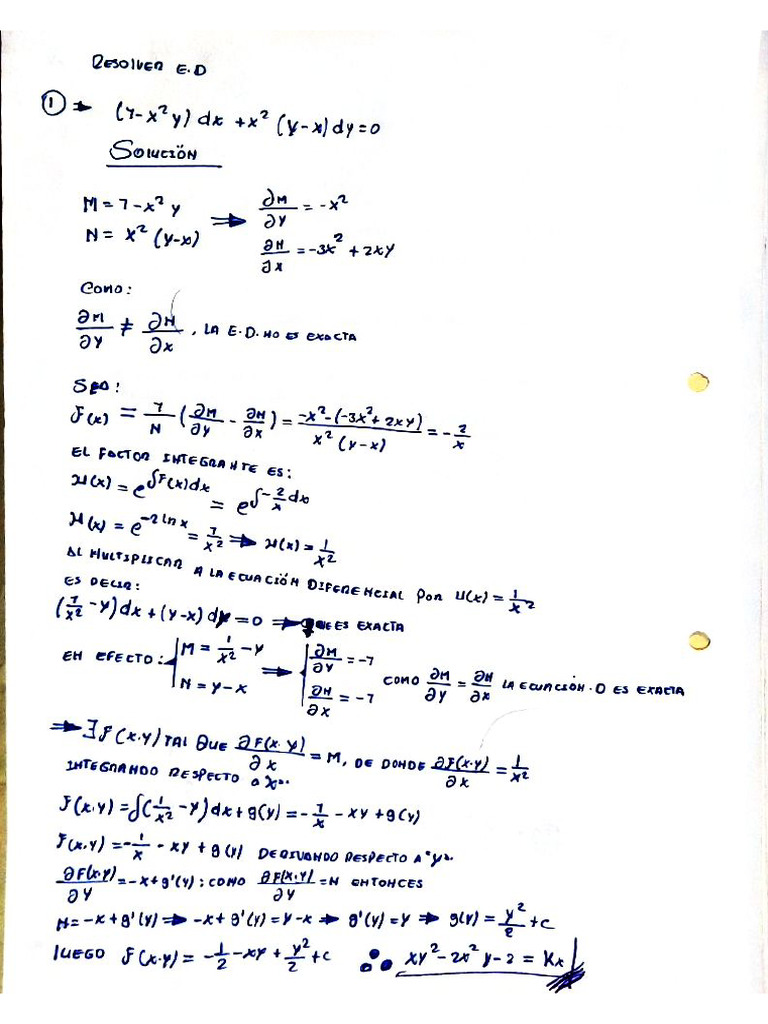 RESOLVER E.D
① ➡ (7-x²y) dx + x² (y-x) dy = 0
SOLUCIÓN
M = 7-x² y ⟹ ∂M/∂y = -x²
N = x² (y-x) ∂N/∂x = -3x² + 2xy
COMO:
∂M/∂y ≠ ∂N/∂x , LA E.D. NO ES EXACTA
SEA:
F(x) = 7/N (∂M/∂y - ∂N/∂x) = -x²-(-3x²+2xy)/x² (y-x) = -2/x
EL FACTOR INTEGRANTE ES:
μ(x) = e^∫F(x)dx = e^∫-2/x dx
μ(x) = e^-2 ln x = 7/x² ➡ μ(x) = 1/x²
AL MULTIPLICAR A LA ECUACIÓN DIFERENCIAL POR U(x) = 1/x²
ES DECIR:
(7/x² - y) dx + (y-x) dy = 0 ➡ QUE ES EXACTA
EN EFECTO: { M = 1/x² - y ⟹ | ∂M/∂y = -7
N = y-x ∂N/∂x = -7 COMO ∂M/∂y = ∂N/∂x LA ECUACIÓN.D ES EXACTA
➡ ∃ F(x.y) TAL QUE ∂F(x.y)/∂x = M, DE DONDE ∂F(x.y)/∂x = 1/x²
INTEGRANDO RESPECTO A "X".
F(x,y) = ∫(1/x² - y) dx + g(y) = -7/x - xy + g(y)
F(x,y) = -1/x - xy + g(y) DERIVANDO RESPECTO A "y".
∂F(x.y)/∂y = -x + g'(y) : COMO ∂F(x,y)/∂y = N ENTONCES
N = -x + g'(y) ➡ -x + g'(y) = y-x ➡ g'(y) = y ➡ g(y) = y²/2 + c
LUEGO F(x.y) = -1/2 - xy + y²/2 + c ∴ xy² - 2x² y - 2 = Kx